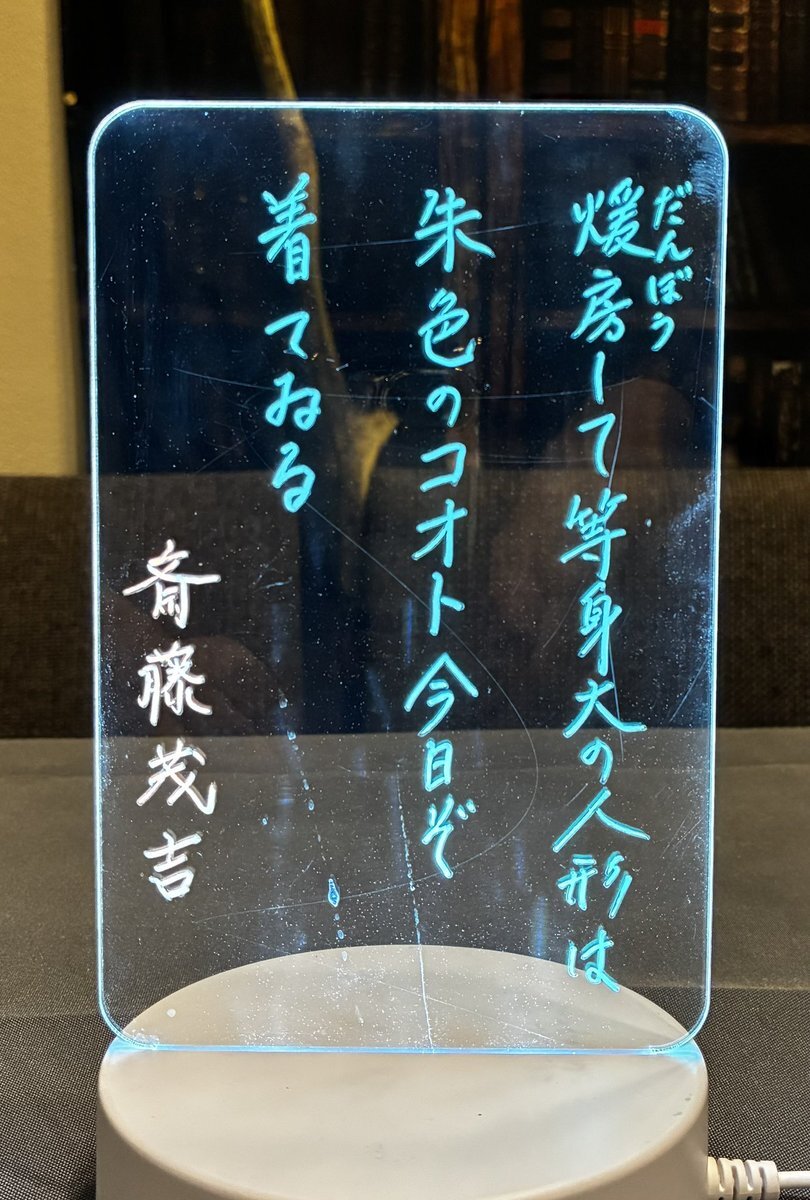 煖房して等身大の人形は
だんぼう
朱色のコオト今日ぞ
着てゐる
斎藤茂吉